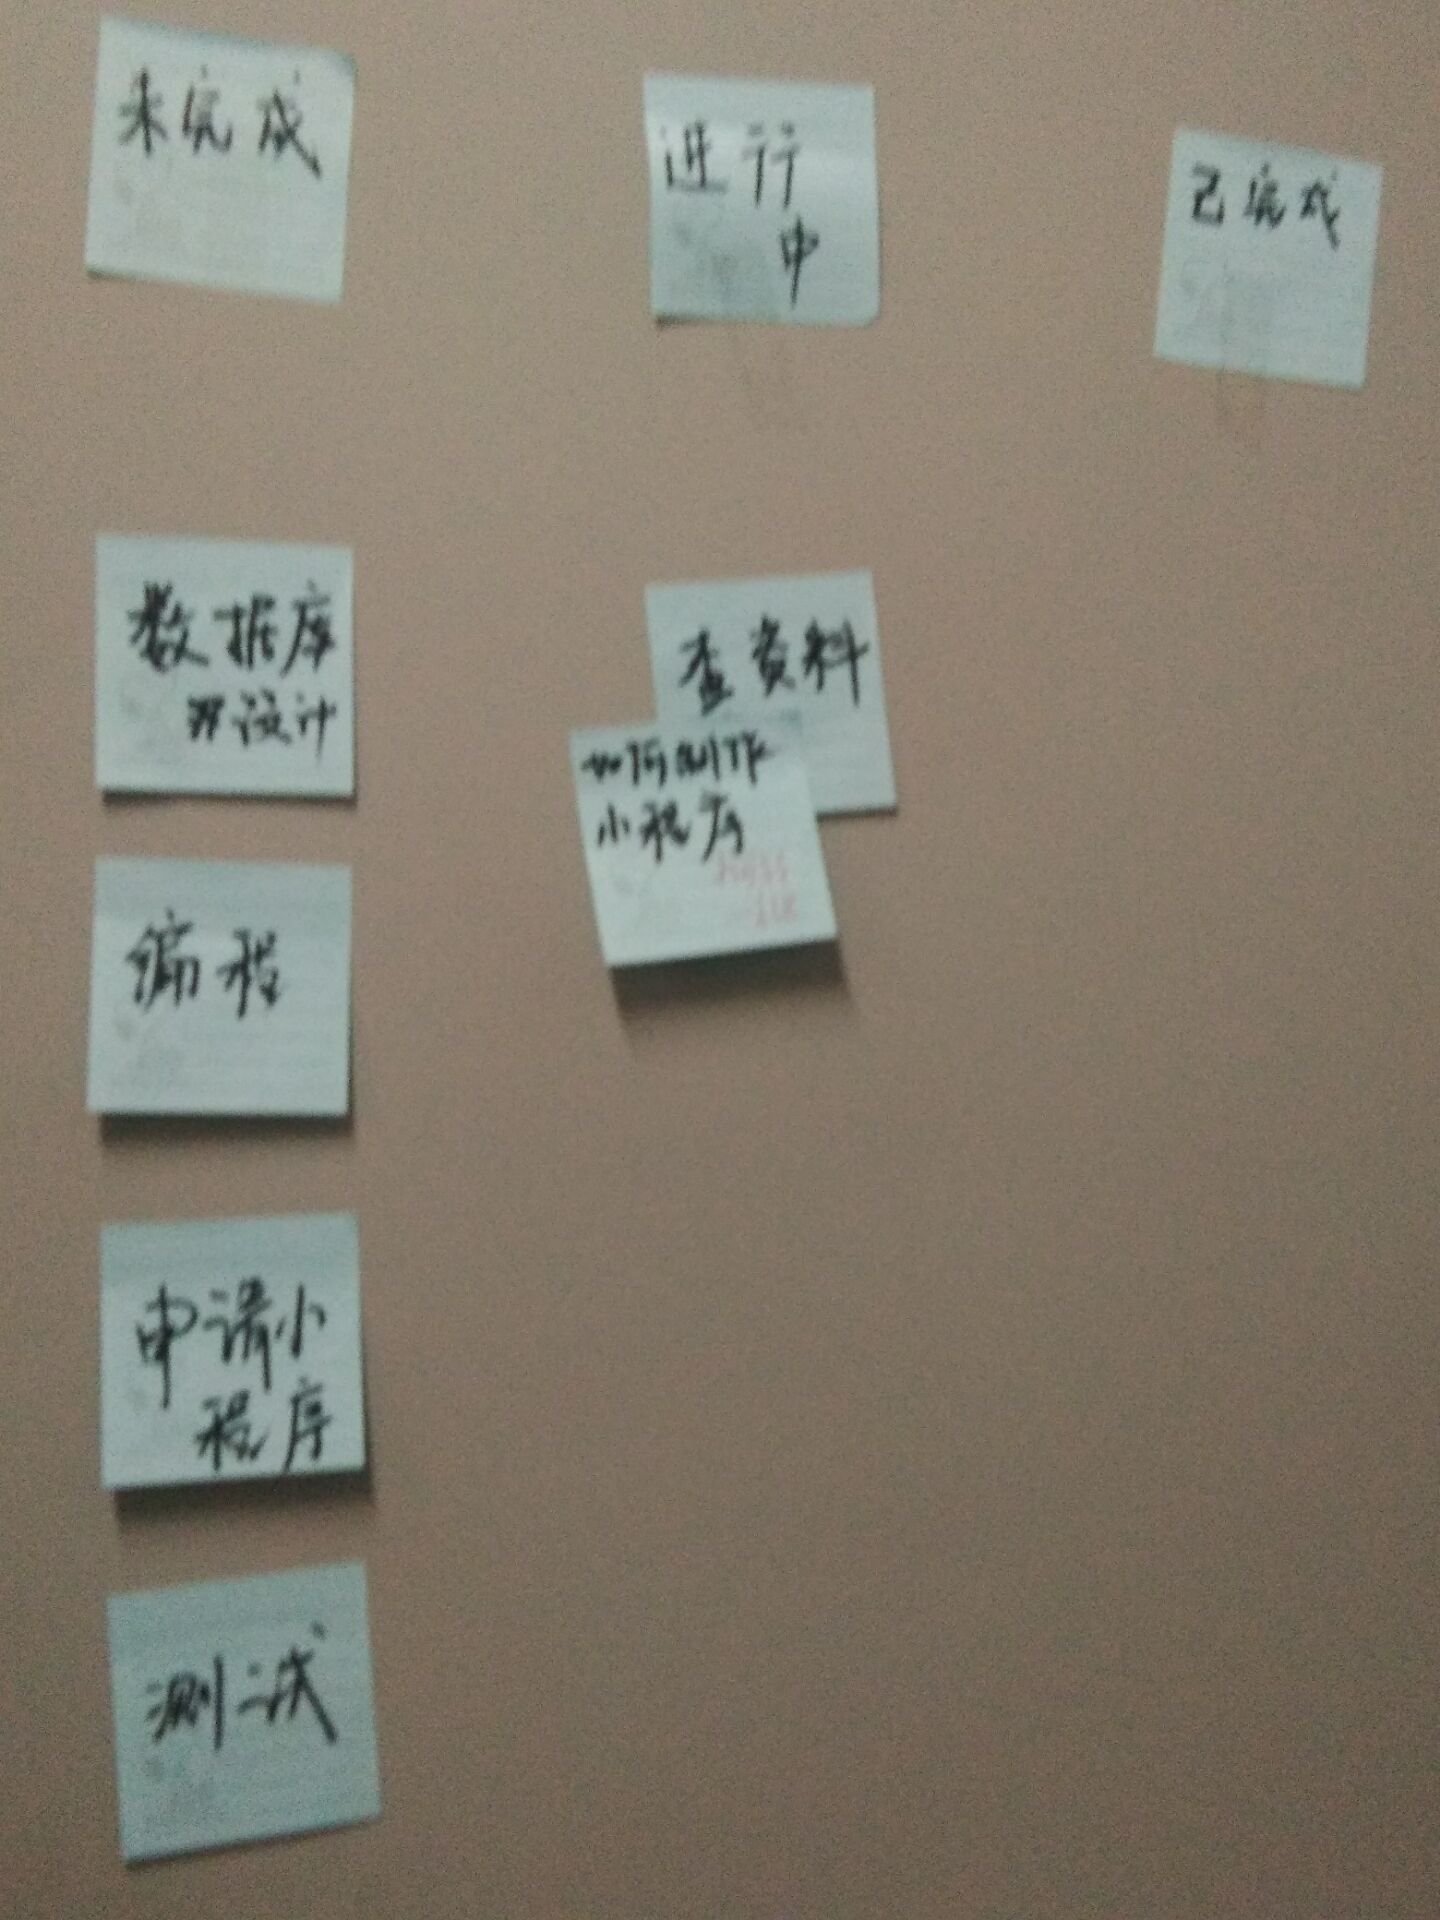 未完成
进行
中
已完成
数据库
设计
编程
申请小
程序
测试
查资料
如何制作
小程序